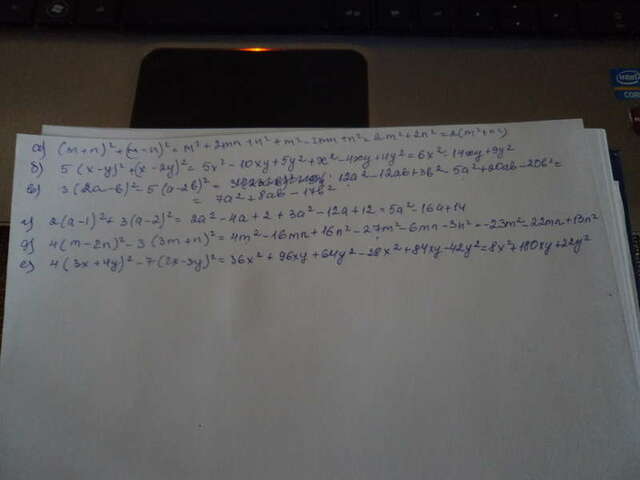 а) (m+n)²+(m-n)²=m²+2mn+n²+m²-2mn+n²=2m²+2n²=2(m²+n²)
б) 5(x-y)²+(x-2y)²=5x²-10xy+5y²+x²-4xy+4y²=6x²-14xy+9y²
в) 3(2a-b)²-5(a-2b)²= 12a²-12ab+3b²-5a²+20ab-20b²=
= 7a²+8ab-17b²
г) 2(a-1)²+3(a-2)²=2a²-4a+2+3a²-12a+12=5a²-16a+14
д) 4(m-2n)²-3(3m+n)²=4m²-16mn+16n²-27m²-6mn-3n²=-23m²-22mn+13n²
е) 4(3x+4y)²-7(2x-3y)²=36x²+96xy+64y²-28x²+84xy-42y²=8x²+180xy+22y²
intel
CORE